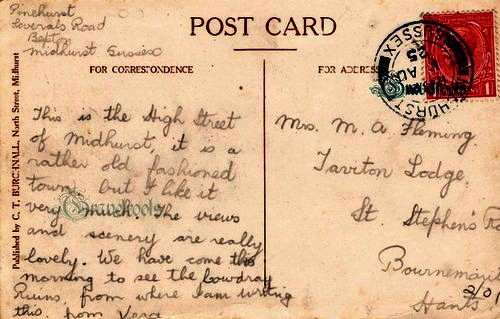 Pinehurst
Severals Road
Bepton
Midhurst Sussex
POST CARD
FOR CORRESPONDENCE
FOR ADDRESS
HURST
SUSSEX
AU
25
1
Published by C. T. BURCHNALL, North Street, Midhurst
This is the High Street
of Midhurst, it is a
rather old fashioned
town, but I like it
very much. The views
and scenery are really
lovely. We have come this
morning to see the Cowdray
Ruins, from where I am writing
this, from Vera
Mrs. M. A. Fleming
Taviton Lodge.
St. Stephen's
Bournemou
Hants